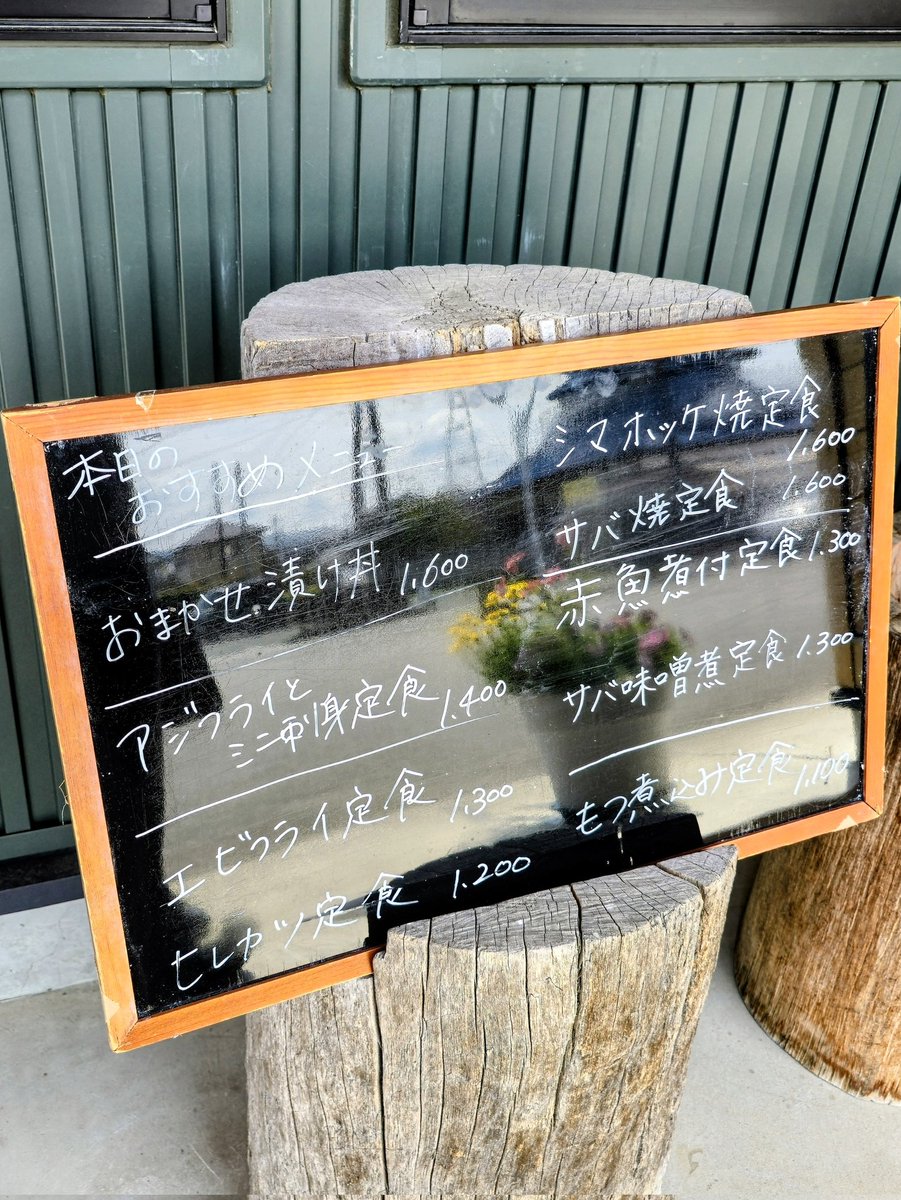 本日の
おすすめメニュー
おまかせ漬け丼 1.600
アジフライと
ミニ刺身定食 1.400
エビフライ定食 1.300
ヒレカツ定食 1.200
シマホッケ焼定食
1.600
サバ焼定食 1.600
赤魚煮付定食 1.300
サバ味噌煮定食 1.300
もつ煮込み定食 1.100